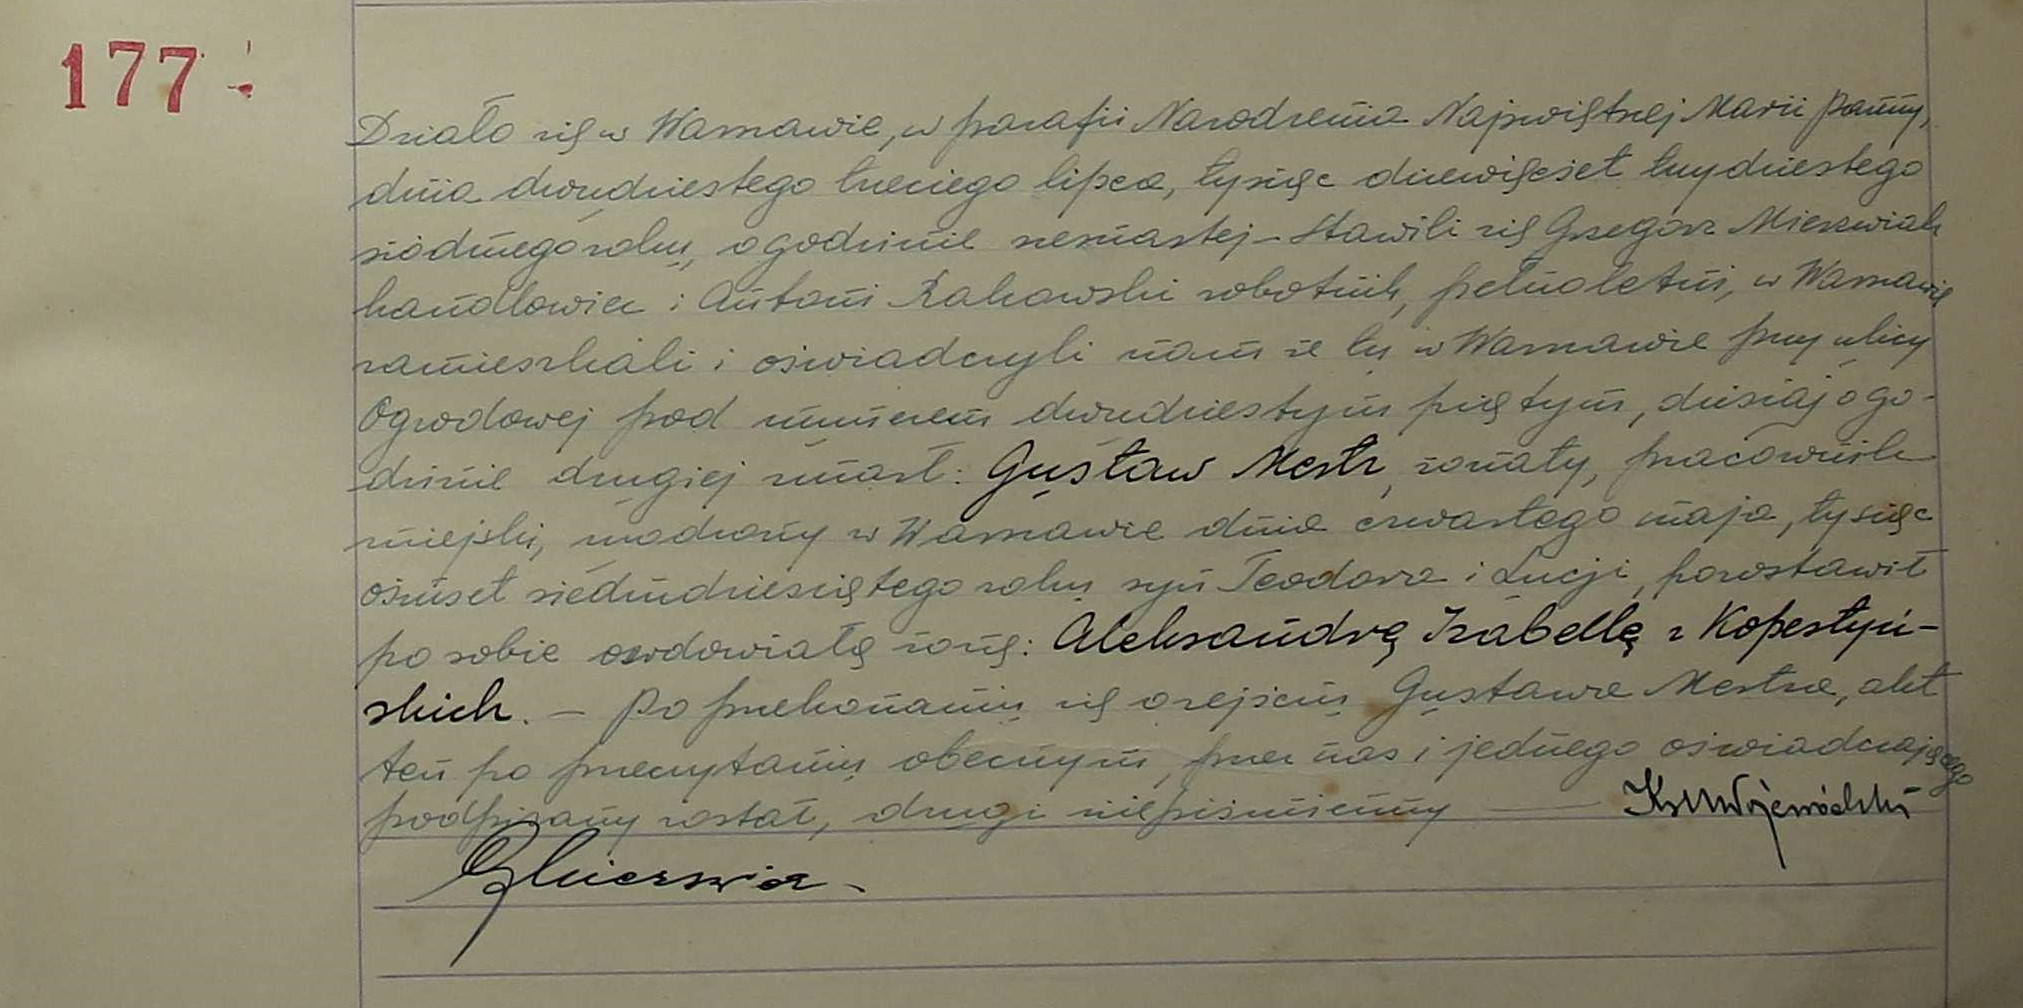 177
Działo się w Warszawie, w parafii Narodzenia Najświętszej Marii Panny,
dnia dwudziestego trzeciego lipca, tysiąc dziewięćset trzydziestego
siódmego roku, o godzinie szesnastej – Stawili się Grzegorz Mierzwiak
handlowiec i Antoni Rakowski robotnik, pełnoletni, w Warszawie
zamieszkali i oświadczyli nam że tu w Warszawie przy ulicy
Ogrodowej pod numerem dwudziestym piątym, dzisiaj o go-
dzinie drugiej zmarł: Gustaw Mestr, żonaty, pracownik
miejski, urodzony w Warszawie dnia czwartego maja, tysiąc
ośmset siedmdziesiątego roku syn Teodora i Lucji, pozostawił
po sobie owdowiałą żonę: Aleksandrę Izabellę z Kopestyń-
skich. – Po przekonaniu się o zejściu Gustawa Mestra, akt
ten po przeczytaniu obecnym, przez nas i jednego oświadczającego
podpisany został, drugi niepiśmienny —